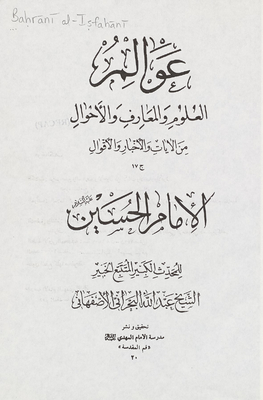 Bahrānī al-Iṣfahānī
عوالم
العلوم والمعارف والأحوال
من الآيات والأخبار والأقوال
ج ١٧
الإمام الحسين عليه السلام
للمحدث الكبير المتتبع الخبير
الشيخ عبد الله البحراني الأصفهاني
تحقيق و نشر
مدرسة الإمام المهدي
«قم المقدسة»
٢٠